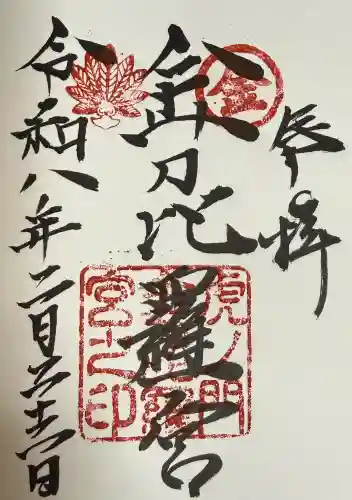 奉拝
金刀比羅宮
令和八年二月二十六日
金
虎ノ門
金刀比羅
宮之印